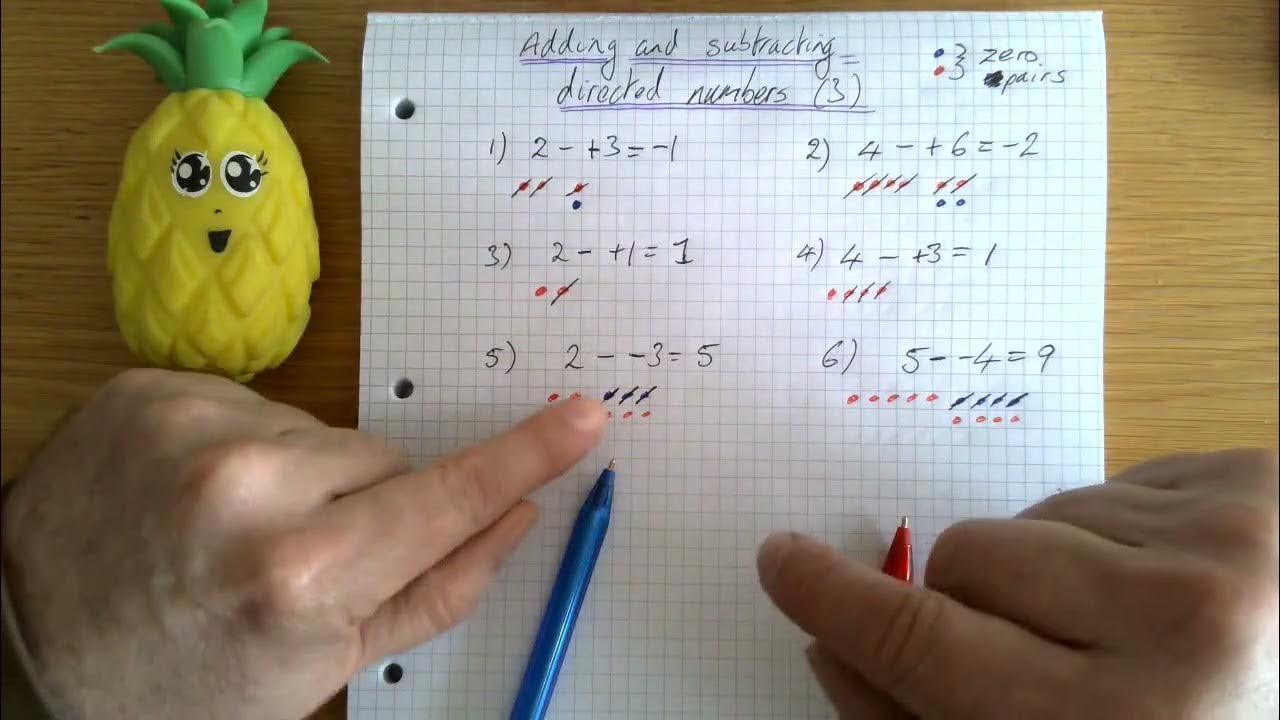 Adding and subtracting
directed numbers (3)
zero
pairs
1) 2 - +3 = -1
2) 4 - +6 = -2
3) 2 - +1 = 1
4) 4 - +3 = 1
5) 2 - -3 = 5
6) 5 - -4 = 9